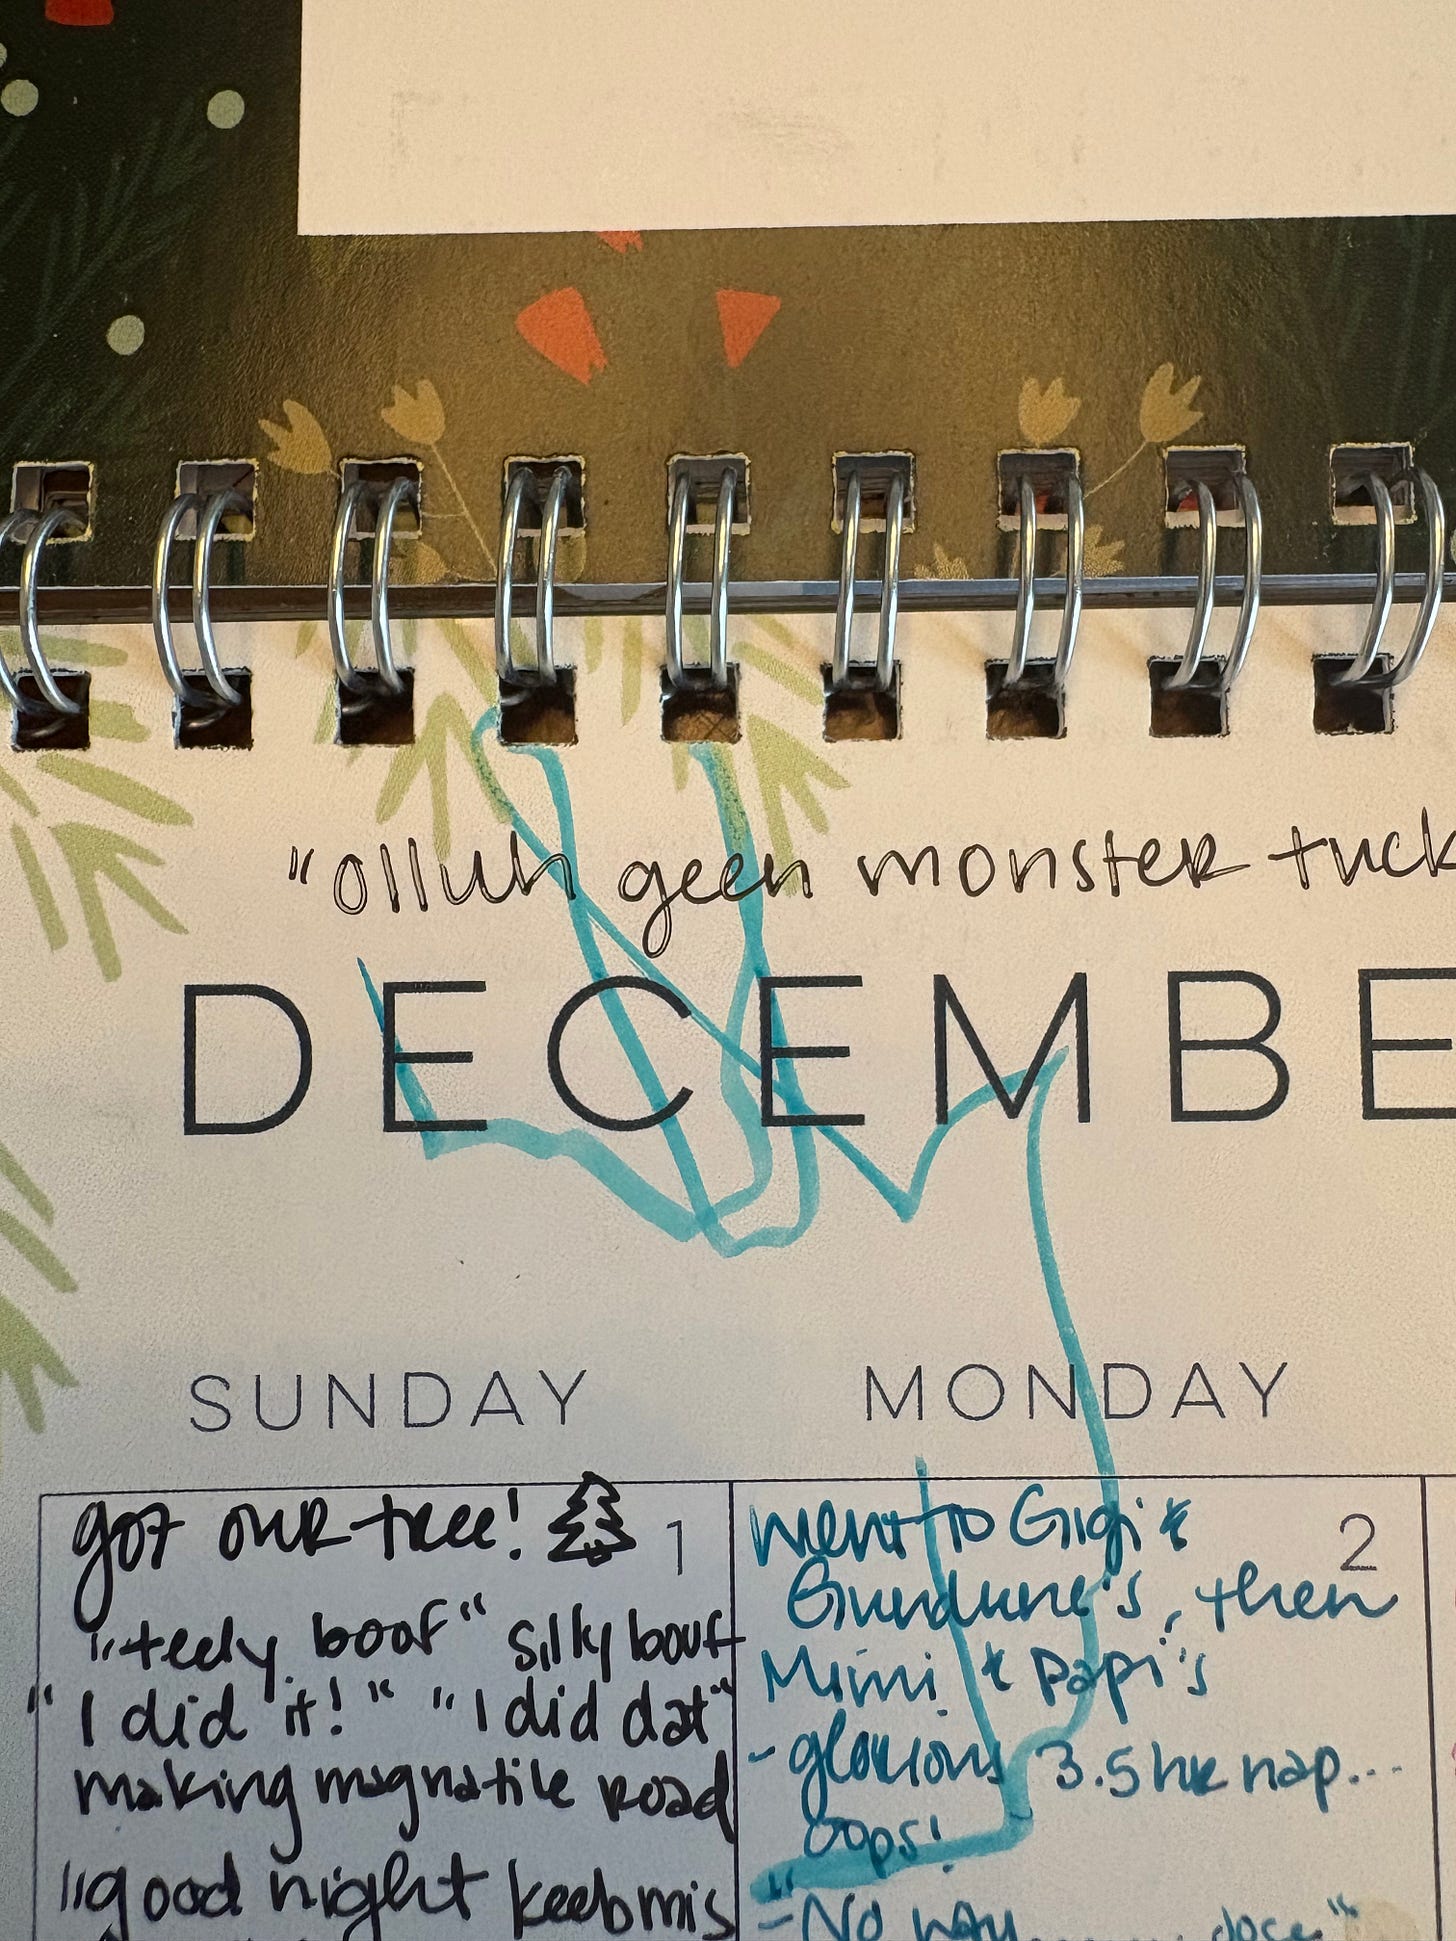 "olluh geen monster tuck
DECEMBE
SUNDAY MONDAY
got our tree! 1
"teely boof" silky bouf
"I did it!" "I did dat"
making magnatile road
"good night keebmis
went to Gigi & 2
Grundune's, then
Mimi & Papi's
- glorious 3.5 hr nap...
oops!
"
- No way